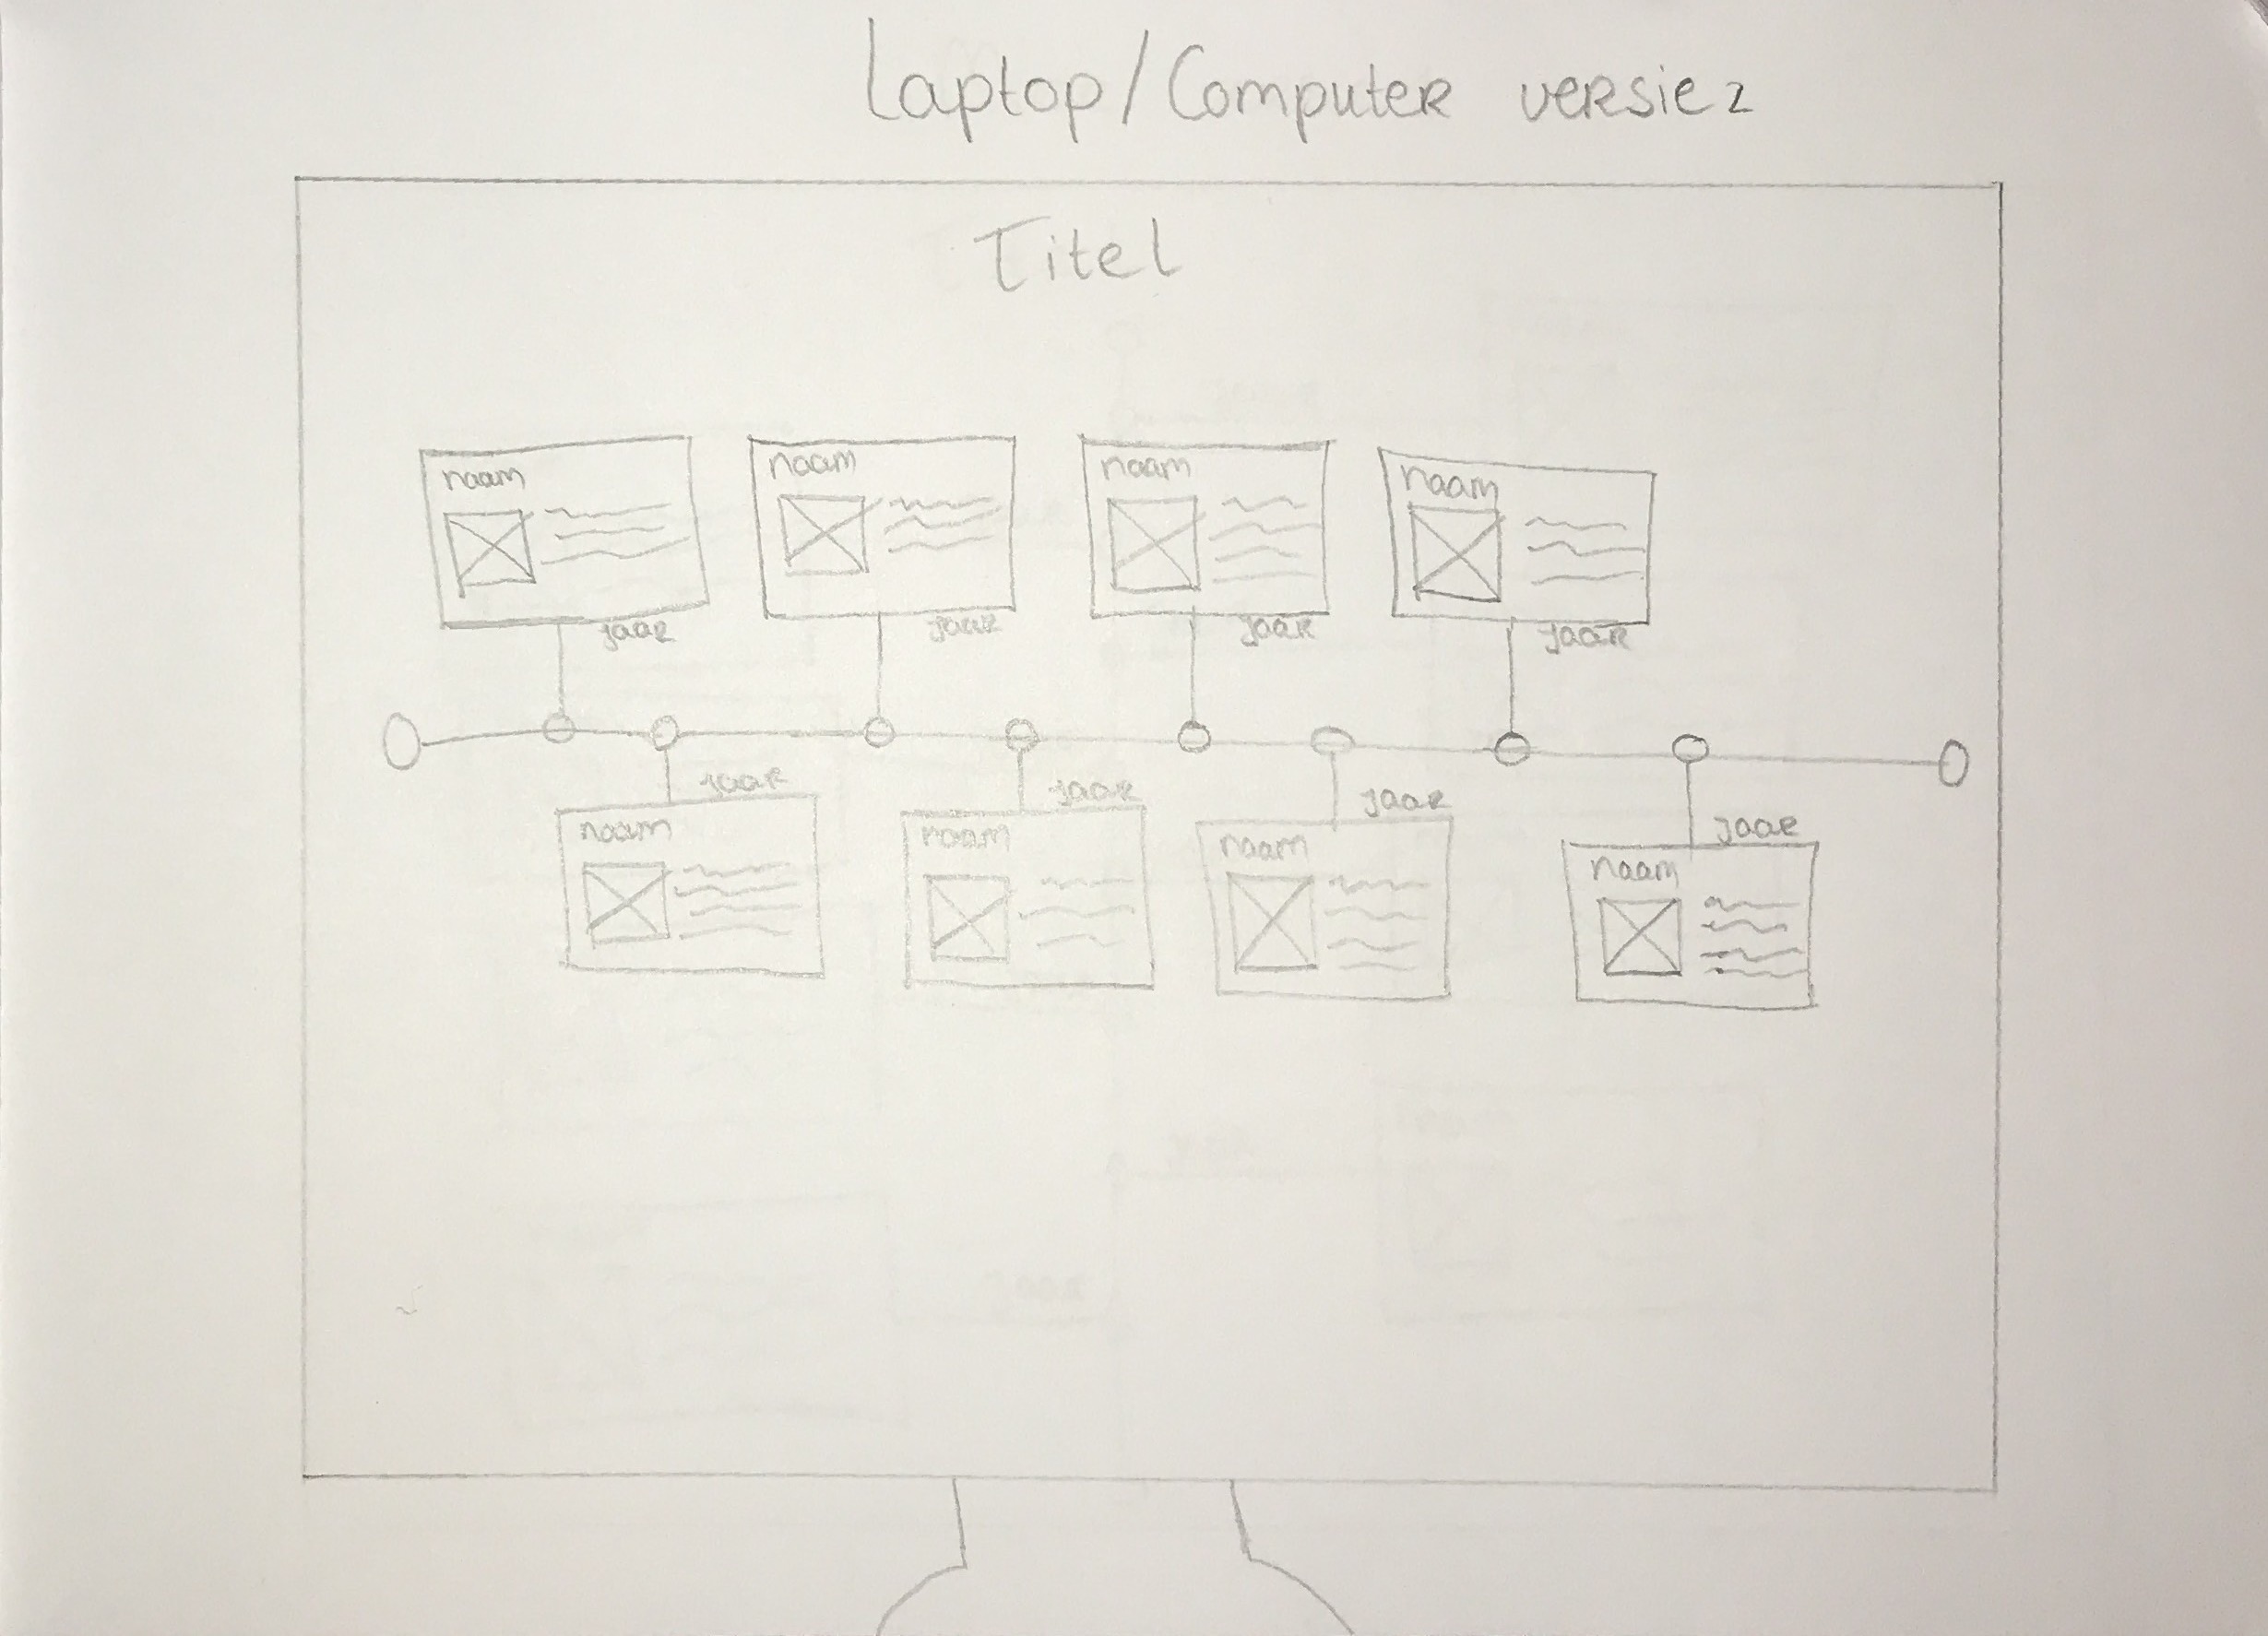 Laptop/Computer versie 2
Titel
naam
naam
naam
naam
jaar
jaar
jaar
jaar
jaar
jaar
jaar
jaar
naam
naam
naam
naam